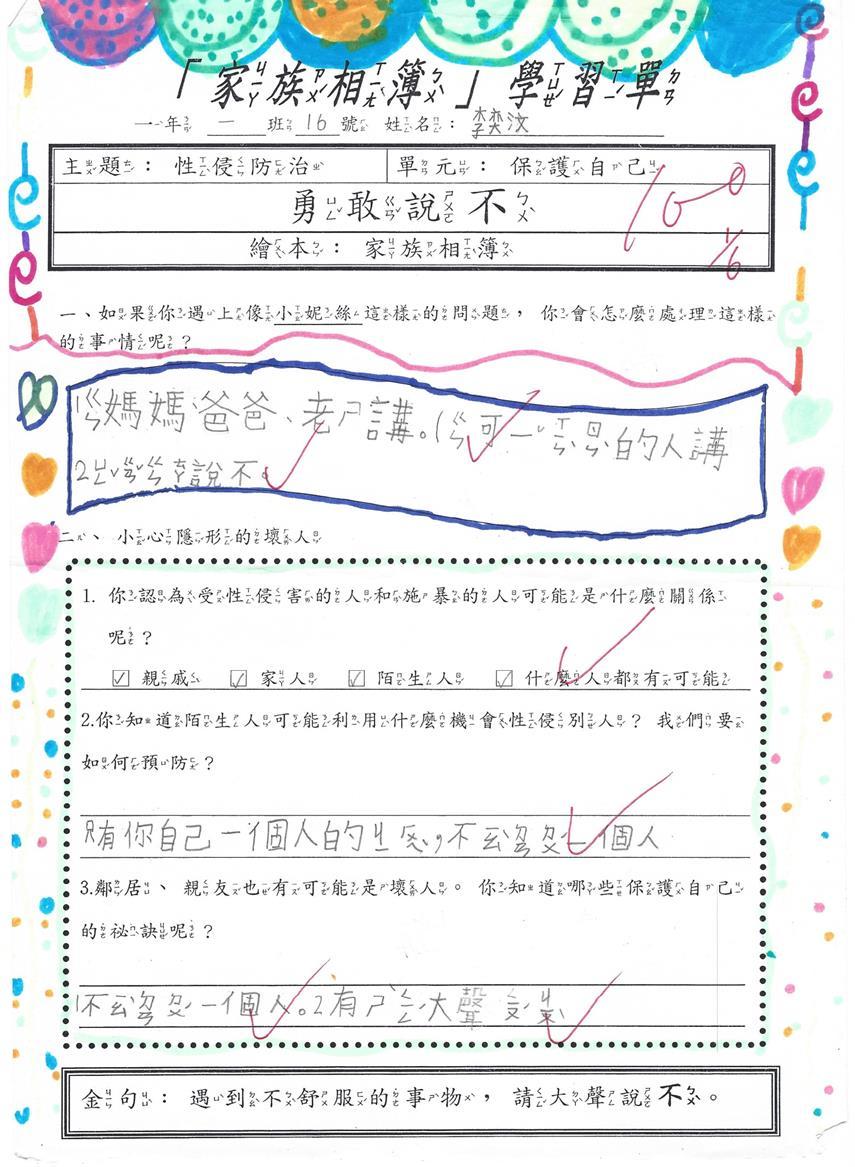 「家族相簿」學習單
一年一班16號 姓名：李奕汶
主題：性侵防治 單元：保護自己
勇敢說不
100
繪本：家族相簿
1/6
一、如果你遇上像小妮絲這樣的問題，你會怎麼處理這樣
的事情呢？
1ㄍㄣ媽媽爸爸、老ㄕ講。
的人講
說不。
二、小心隱形的壞人
1. 你認為受性侵害的人和施暴的人可能是什麼關係
呢？
☑ 親戚 ☑ 家人 ☑ 陌生人 ☑ 什麼人都有可能
2.你知道陌生人可能利用什麼機會性侵別人？我們要
如何預防？
只有你自己一個人的ㄕ候，不 一個人
3.鄰居、親友也有可能是壞人。你知道哪些保護自己
的祕訣呢？
1不 一個人。2有 大聲
金句：遇到不舒服的事物，請大聲說不。